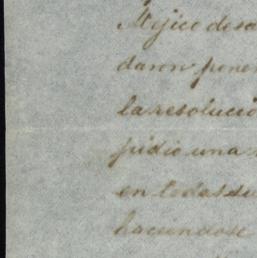 Mejico de sa
daron pone
la resolució
pidio una
en todas su
haciendose